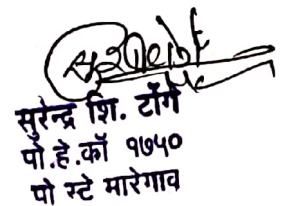 सुरेन्द्र शि. टोंगे
पो.हे.कॉ १७५०
पो स्टे मारेगाव